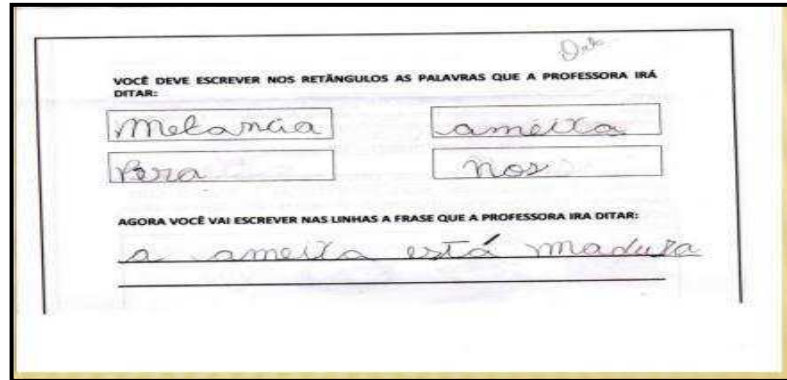 VOCÊ DEVE ESCREVER NOS RETÂNGULOS AS PALAVRAS QUE A PROFESSORA IRÁ
DITAR:
Melancia ameixa
Pera nos
AGORA VOCÊ VAI ESCREVER NAS LINHAS A FRASE QUE A PROFESSORA IRA DITAR:
a ameixa está madura